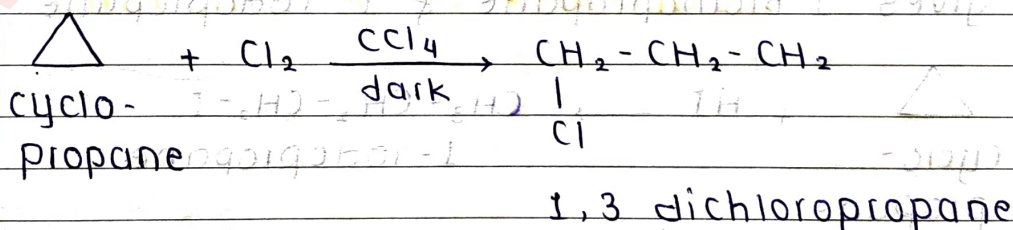 + Cl₂ CCl₄ dark → CH₂ - CH₂ - CH₂
cyclo-
|
Cl
propane
1,3 dichloropropane